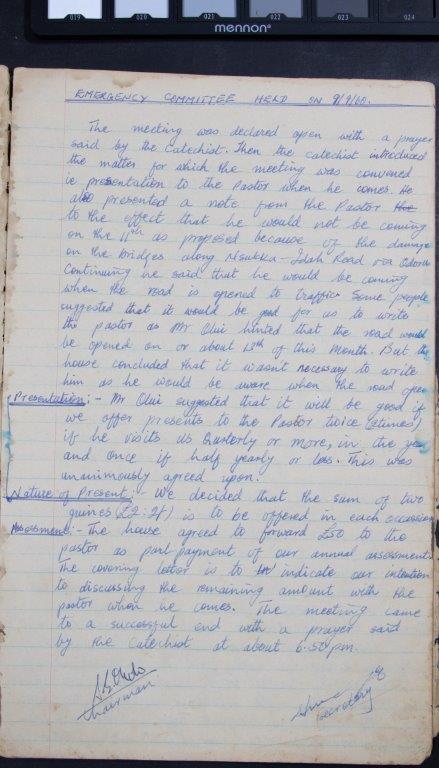 019 020 021 022 023 024
mennon
EMERGENCY COMMITTEE HELD ON 9/9/60.
The meeting was declared open with a prayer
said by the Catechist. Then the catechist introduced
the matter for which the meeting was convened
ie presentation to the Pastor when he comes. He
also presented a note from the Pastor
to the effect that he would not be coming
on the 11th as proposed because of the damage
on the bridges along Nsukka - Idah Road via Odoru
Continuing he said that he would be coming
when the road is opened to traffic. Some people
suggested that it would be good for us to write
the pastor as Mr Olui hinted that the road would
be opened on or about 13th of this Month. But the
house concluded that it wasn't necessary to write
him as he would be aware when the road open
Presentation:- Mr Olui suggested that it will be good if
we offer presents to the Pastor twice (2times)
if he visits us Quaterly or more, in the year
and once if half yearly or less. This was
unanimously agreed upon.
Nature of Present:- We decided that the sum of two
guines (£2:2/) is to be offered in each occassion
Assessment:- The house agreed to forward £50 to the
pastor as part payment of our annual assessment.
The covering letter is to indicate our intention
to discussing the remaining amount with the
pastor when he comes. The meeting came
to a successful end with a prayer said
by the Catechist at about 6.50 pm.
Chairman
Secretary